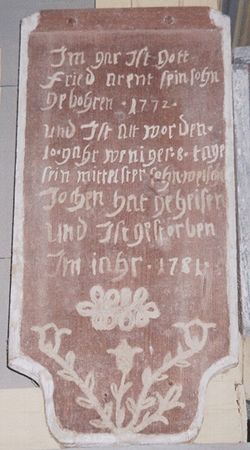 Im gar Ist Gott
Fried arent sein sohn
Gebohren · 1772 ·
und Ist alt worden
10 Jahr weniger · 8 · tage
sein mittelster sohn
Jochen hat geheisen
und Istgestorben
Im iahr · 1781 ·